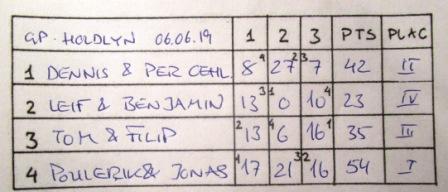 GP. HOLDLYN 06.06.19 1 2 3 PTS PLAC
1 DENNIS & PER OEHL. 8 4 27 2 3 7 42 II
2 LEIF & BENJAMIN 13 3 1 0 10 4 23 IV
3 TOM & FILIP 2 13 4 6 16 1 35 III
4 POULERIK & JONAS 1 17 21 3 2 16 54 I